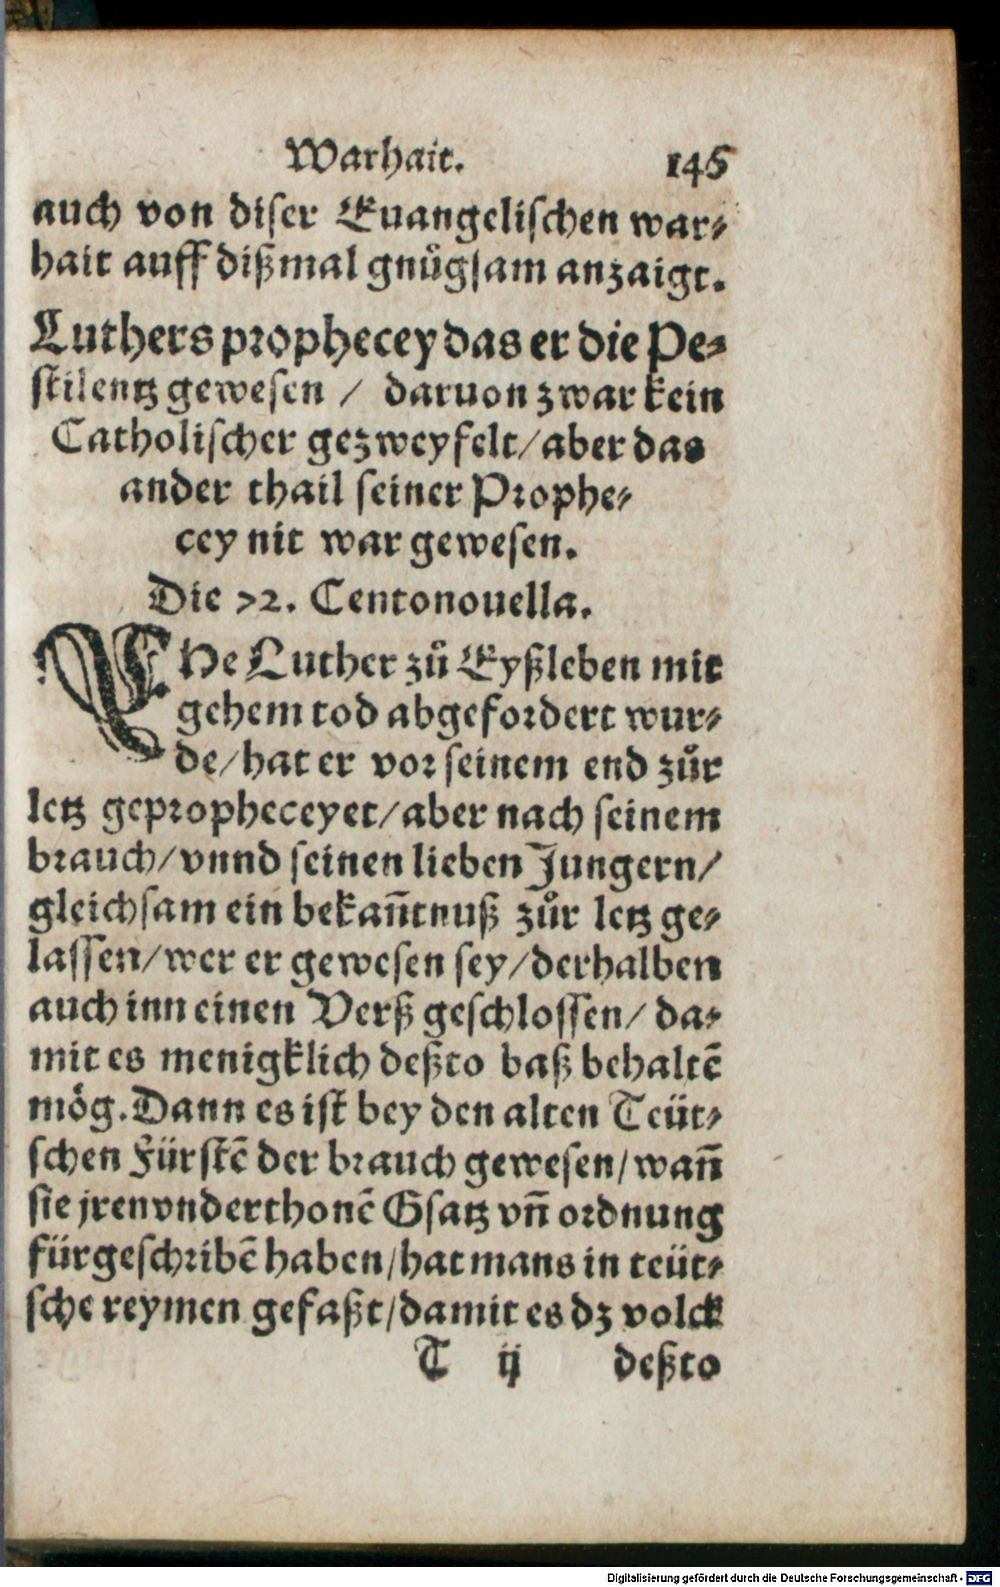 Warhait. 146
auch von diser Euangelischen war⸗
hait auff dißmal gnůgsam anzaigt.
Luthers prophecey das er die Pe⸗
stilentz gewesen / daruon zwar kein
Catholischer gezweyfelt/ aber das
ander thail seiner Prophe⸗
cey nit war gewesen.
Die 72. Centonouella.
EHe Luther zů Eyßleben mit
gehem tod abgefordert wur⸗
de/ hat er vor seinem end zůr
letz gepropheceyet/ aber nach seinem
brauch/ vnnd seinen lieben Jungern/
gleichsam ein bekañtnuß zůr letz ge⸗
lassen/ wer er gewesen sey/ derhalben
auch inn einen Verß geschlossen/ da⸗
mit es menigklich deßto baß behaltē
mög. Dann es ist bey den alten Teüt⸗
schen Fürstē der brauch gewesen/ wañ
sie jren vnderthonē Gsatz vñ ordnung
fürgeschribē haben/ hat mans in teüt⸗
sche reymen gefaßt/ damit es dz volck
T ij deßto
Digitalisierung gefördert durch die Deutsche Forschungsgemeinschaft - DFG